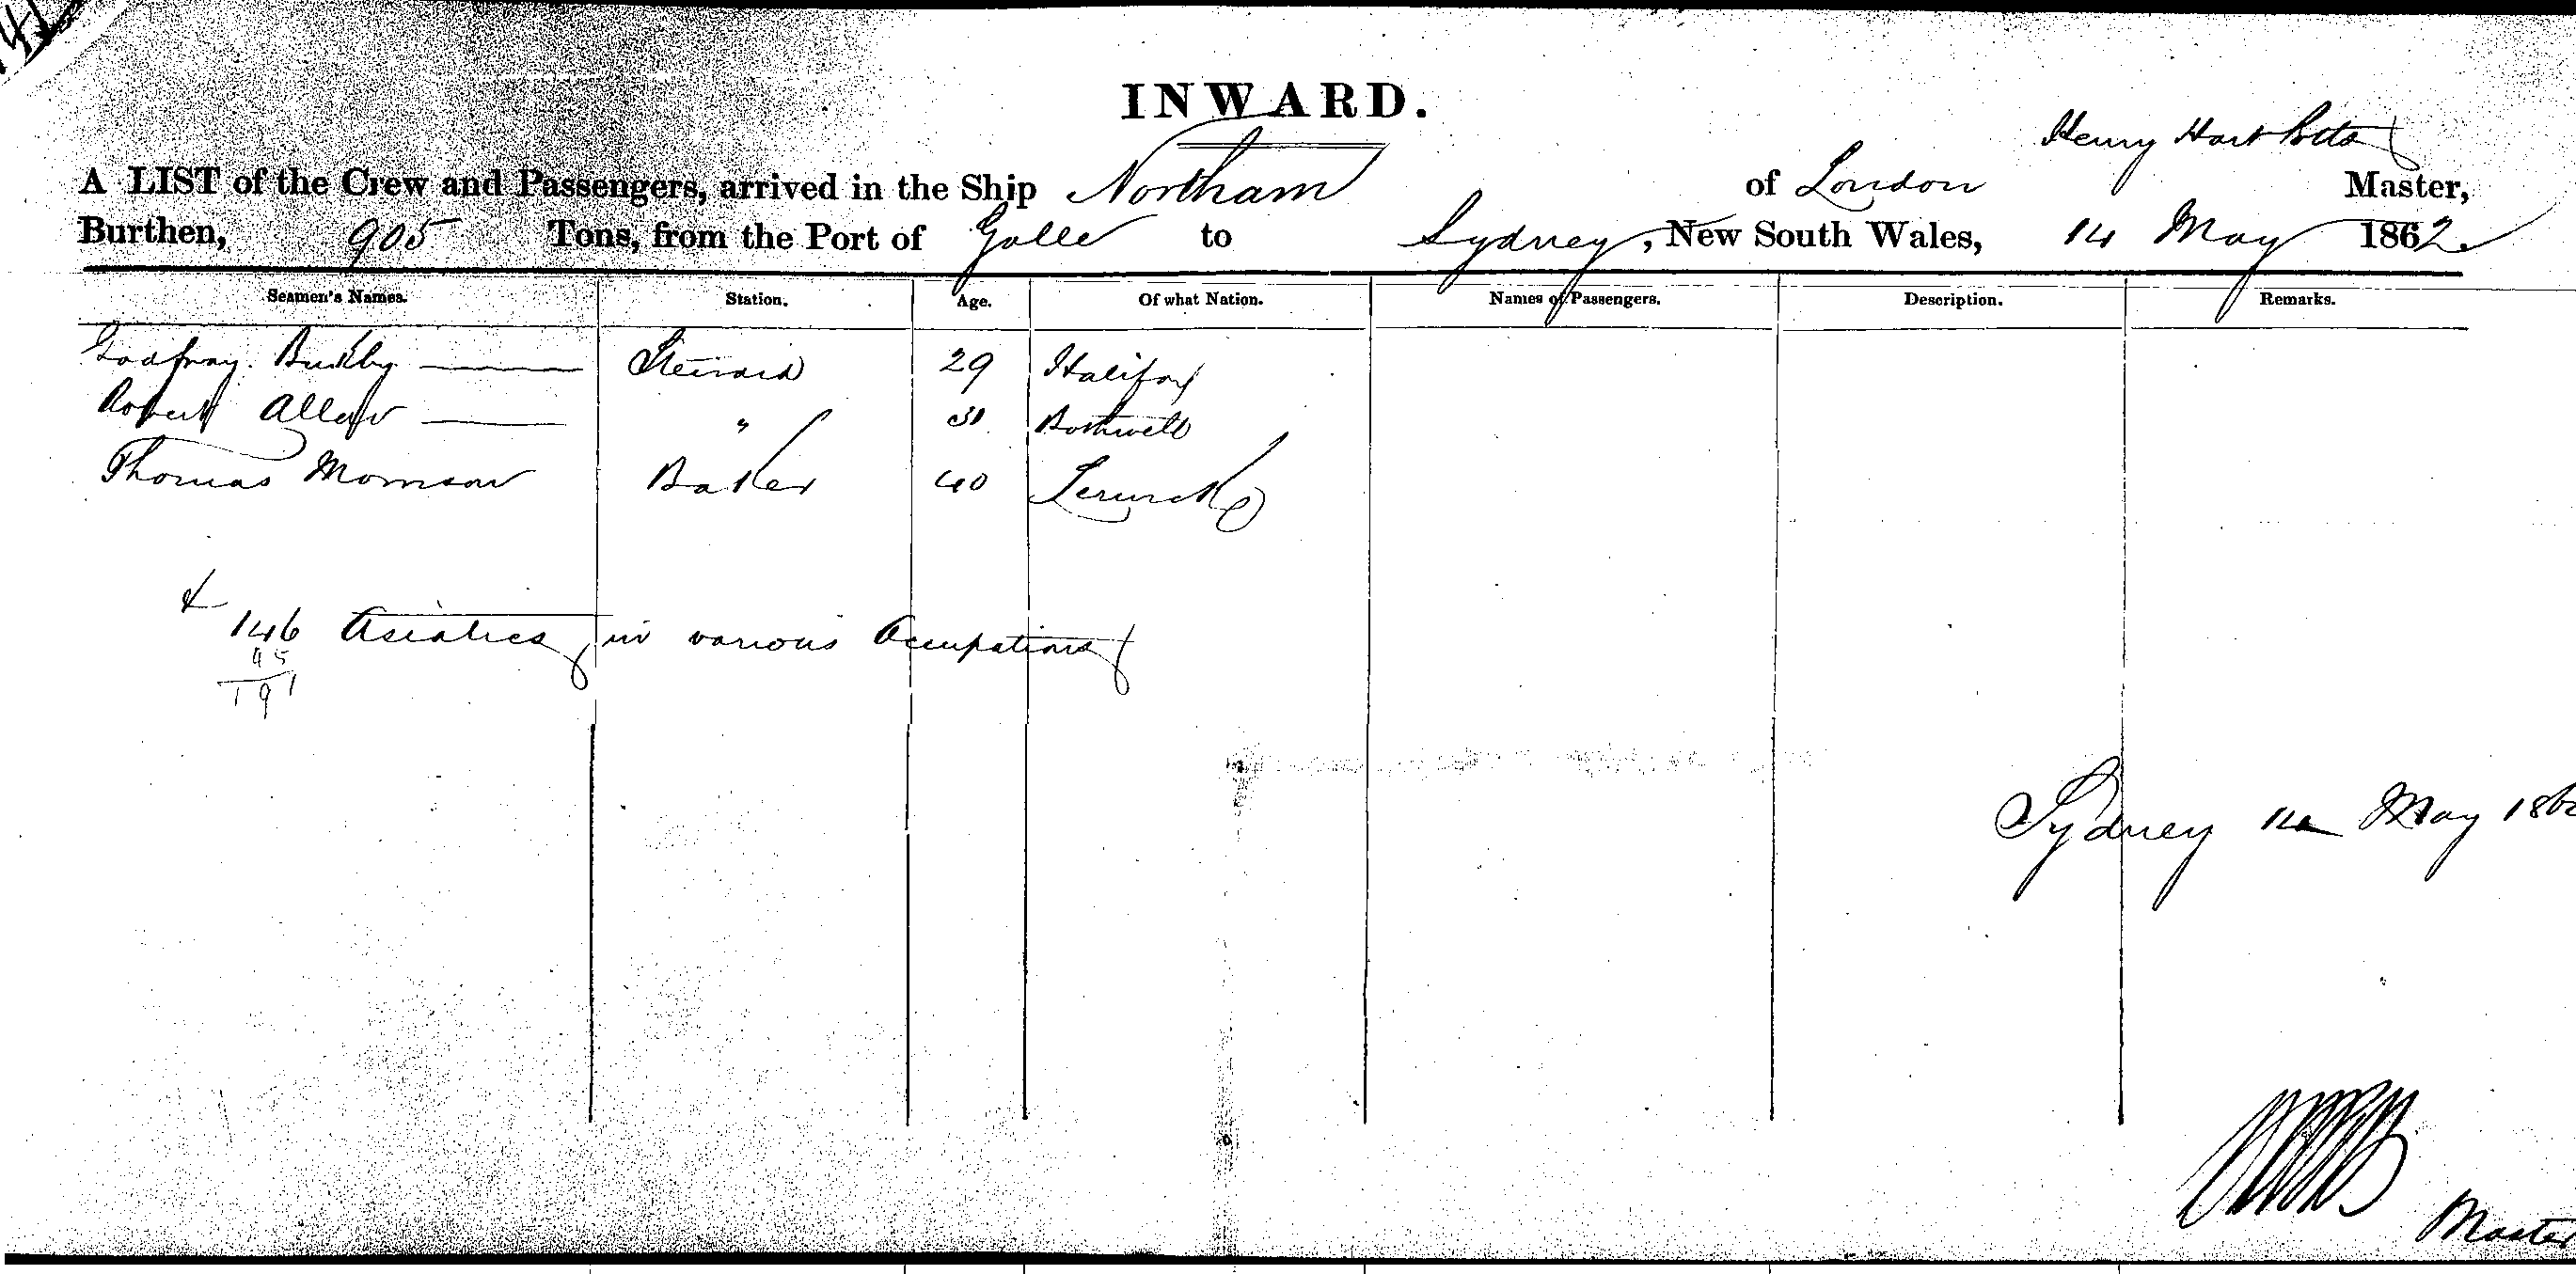 INWARD.
Henry Hart Potts
A LIST of the Crew and Passengers, arrived in the Ship Northam of London Master,
Burthen, 905 Tons, from the Port of Galle to Sydney, New South Wales, 14 May 1862
Seamen's Names. Station. Age. Of what Nation. Names of Passengers. Description. Remarks.
Godfray Steward 29 Halifax
Robert Allen " 31 Bothwell
Thomas Morrison Baker 40 Lerwick
& 146 Asiatics in various Occupations
45
191
Sydney 14 May 186
Master